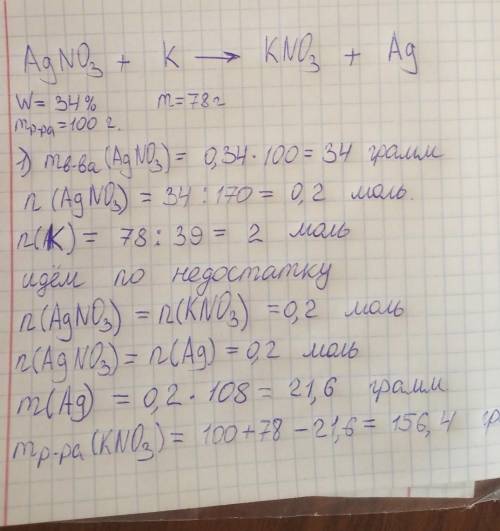 AgNO₃ + K → KNO₃ + Ag
W = 34% m = 78 г
mр-ра = 100 г.
1) mв-ва (AgNO₃) = 0,34 · 100 = 34 грамм
n (AgNO₃) = 34 : 170 = 0,2 моль.
n(K) = 78 : 39 = 2 моль
идём по недостатку
n(AgNO₃) = n(KNO₃) = 0,2 моль
n(AgNO₃) = n(Ag) = 0,2 моль
m(Ag) = 0,2 · 108 = 21,6 грамм
mр-ра (KNO₃) = 100 + 78 − 21,6 = 156,4 гр